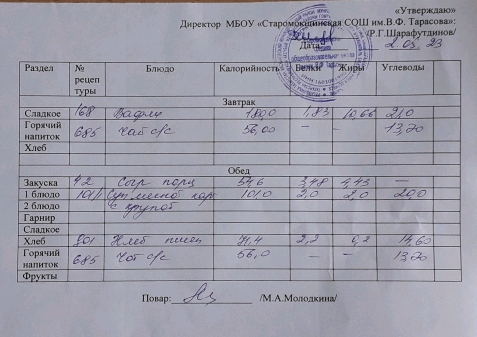 «Утверждаю»
Директор МБОУ «Старомокшинская СОШ им.В.Ф. Тарасова»:
/Р.Г.Шарафутдинов/
Дата: 2.05.23
Раздел № рецептуры Блюдо Калорийность Белки Жиры Углеводы
Завтрак
Сладкое 168 Вафли 180,0 1,83 10,66 21,0
Горячий напиток 685 Чай с/с 56,00 – – 13,20
Хлеб
Обед
Закуска 42 Сыр порц 54,6 3,48 4,43 —
1 блюдо Суп 101,0 2,0 2,0 20,0
2 блюдо с крупой
Гарнир
Сладкое
Хлеб 801 Хлеб пшен 71,4 2,2 0,2 14,60
Горячий напиток 685 Чай с/с 56,0 – – 13,20
Фрукты
Повар: /М.А.Молодкина/